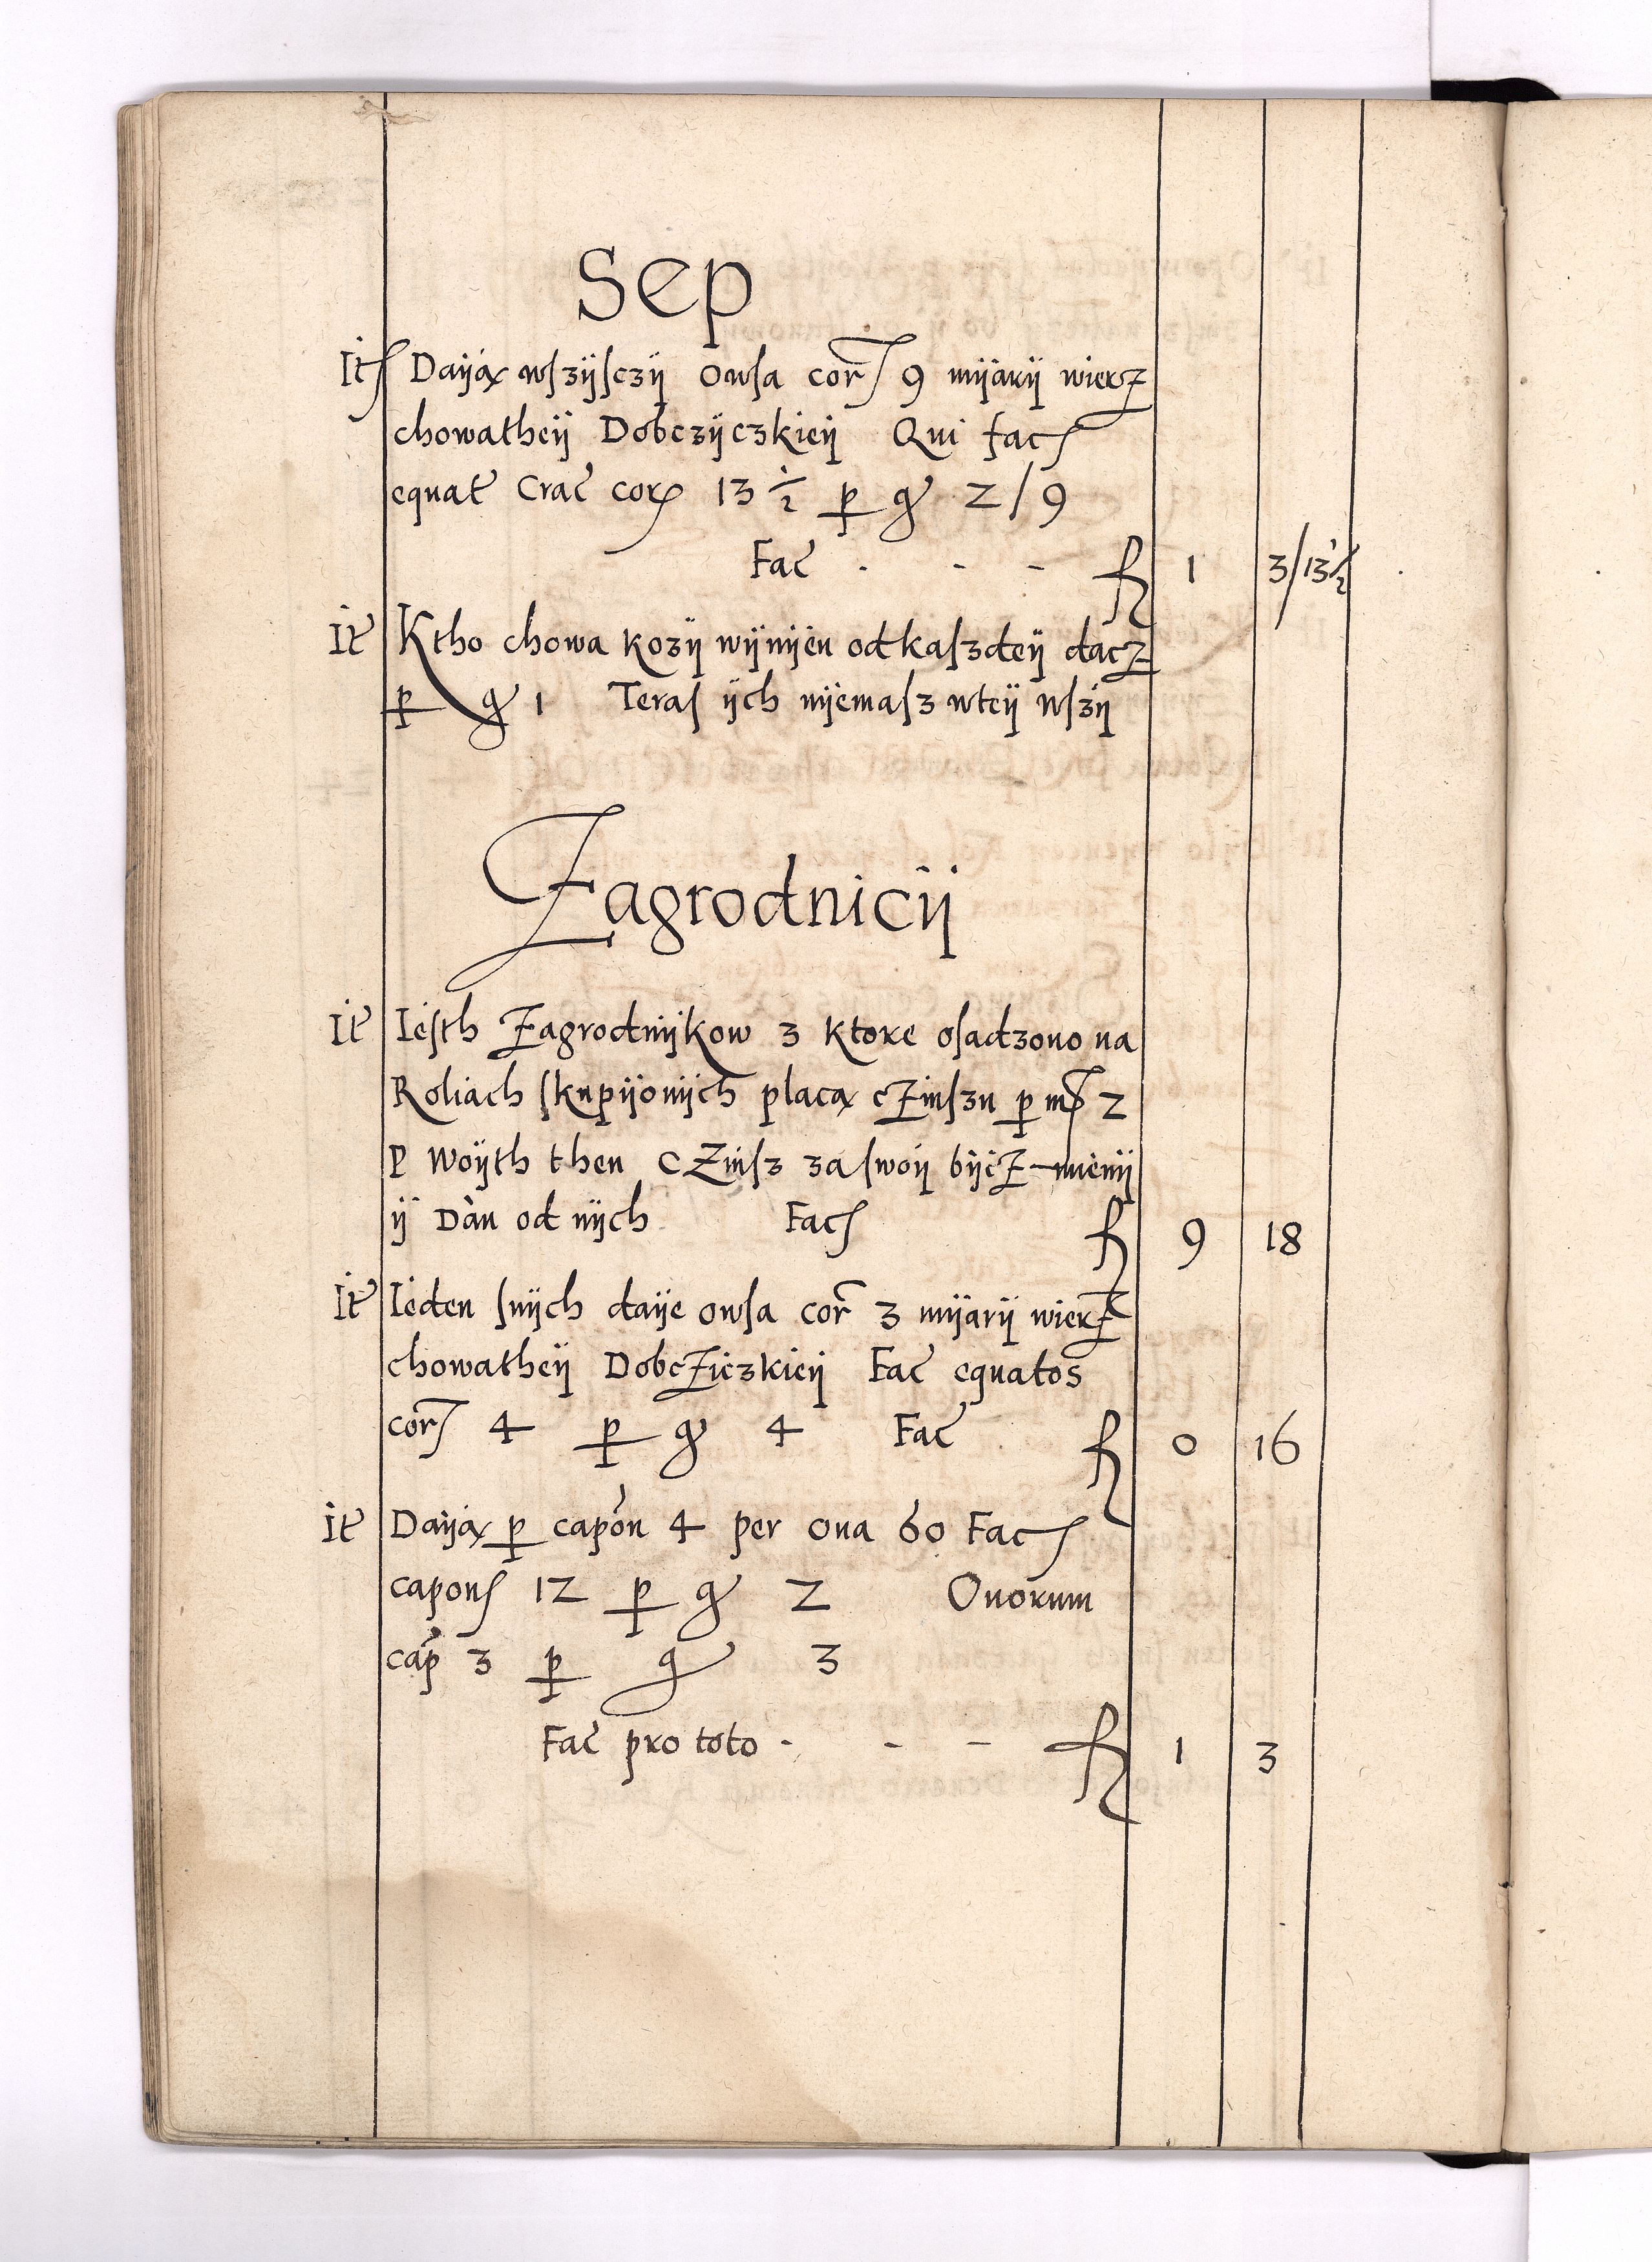 Sep
It Daÿą wszÿsczÿ owsa cor 9 mÿarÿ wierz
chowatheÿ Dobczÿczkieÿ Qui fac
equat Crac cor 13 1/2 p g 2/9
Fac . - - f 1 3/13 1/2
It Ktho chowa kozÿ wÿnÿen od kaszdeÿ dacz
p g 1 Teras ÿch nÿemasz wteÿ wszÿ
Zagrodnicÿ
It Iesth Zagrodnÿkow 3 ktore osadzono na
Roliach skupÿonÿch placą cZinszu p m 2
P Woÿth then cZinsz za swoÿ bÿcZ mienÿ
ÿ Dan od nÿch Fac f 9 18
It Ieden snÿch daÿe owsa cor 3 mÿarÿ wierz
chowatheÿ DobcZiczkieÿ Fac equatos
cor 4 p g 4 Fac f 0 16
It Daÿą p capon 4 per oua 60 Fac
capon 12 p g 2 Ouorum
cap 3 p g 3
Fac pro toto - - - f 1 3